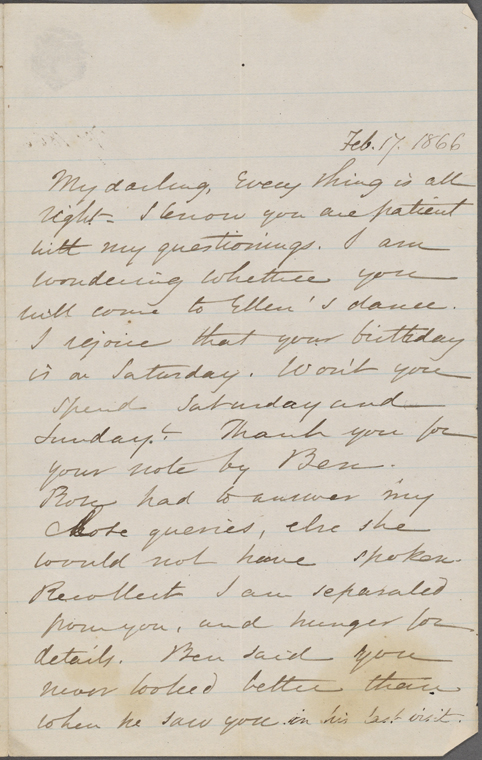 Feb. 17. 1866
My darling, Every thing is all
right - I know you are patient
with my questionings. I am
wondering whether you
will come to Ellen's dance.
I rejoice that your birthday
is on Saturday. Won't you
spend Saturday and
Sunday? Thank you for
your note by Ben.
had to answer my
close queries, else she
would not have spoken.
Recollect I am separated
from you, and hunger for
details. Ben said you
never looked better than
when he saw you in his last visit.